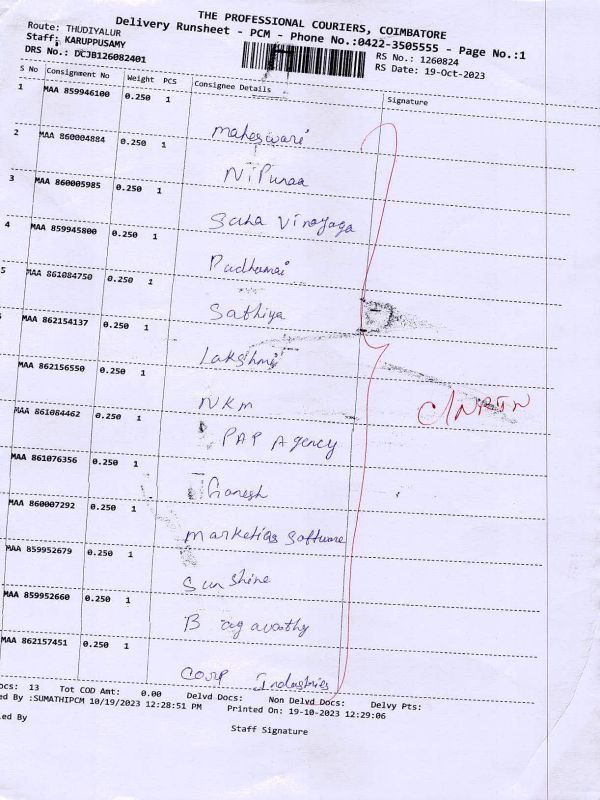 THE PROFESSIONAL COURIERS, COIMBATORE
Delivery Runsheet - PCM - Phone No.:0422-3505555 - Page No.:1
Route: THUDIYALUR
Staff: KARUPPUSAMY
DRS No.: DCJB126082401
RS No.: 1260824
RS Date: 19-Oct-2023
S No Consignment No Weight PCS Consignee Details Signature
1 MAA 859946100 0.250 1
Maheswari
2 MAA 860004884 0.250 1
Nipunaa
3 MAA 860005985 0.250 1
Saha Vinayaga
4 MAA 859945800 0.250 1
Padhamai
5 MAA 861084750 0.250 1
Sathiya
MAA 862154137 0.250 1
Lakshmi
MAA 862156550 0.250 1
NKM
MAA 861084462 0.250 1
PAP Agency
MAA 861076356 0.250 1
Ganesh
MAA 860007292 0.250 1
Marketing Software
MAA 859952679 0.250 1
Sunshine
MAA 859952660 0.250 1
B agavathy
MAA 862157451 0.250 1
Corp Industries
C/NRTN
ocs: 13 Tot COD Amt: 0.00 Delvd Docs: Non Delvd Docs: Delvy Pts:
ed By :SUMATHIPCM 10/19/2023 12:28:51 PM Printed On: 19-10-2023 12:29:06
led By
Staff Signature